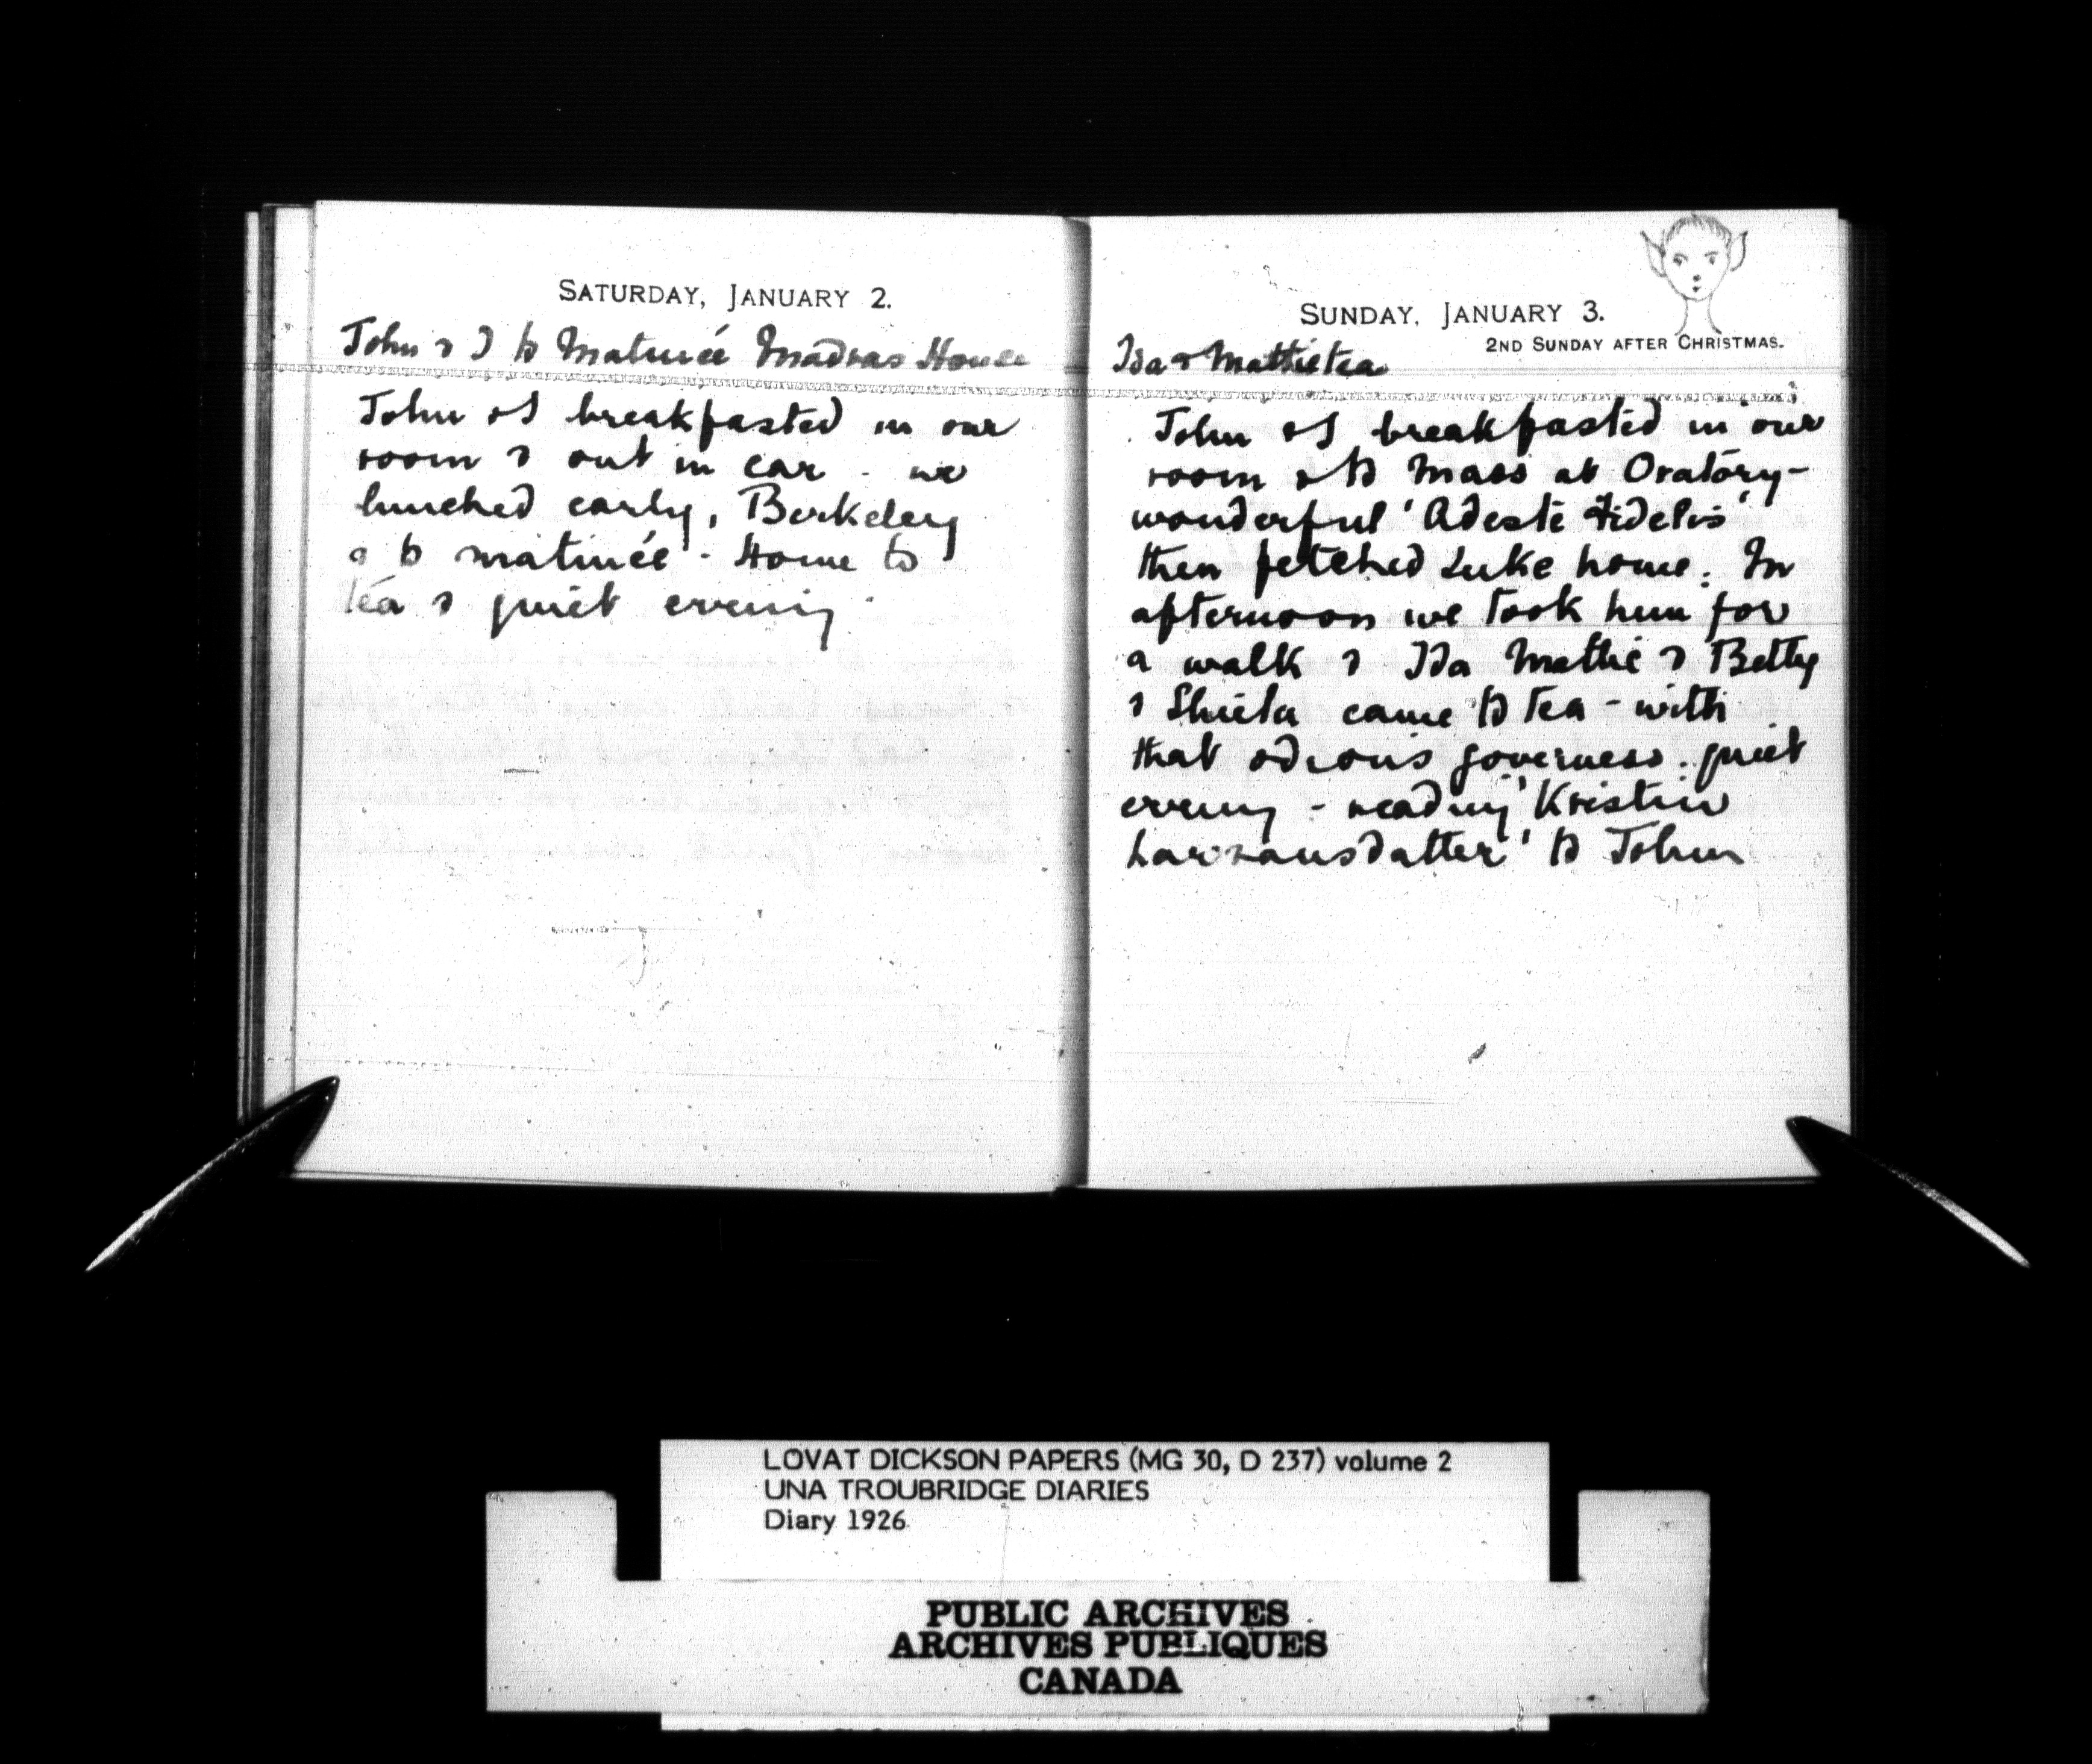 SATURDAY, JANUARY 2.
John & I to Matinée Madras House
John & I breakfasted in our
room & out in car - we
lunched early, Berkeley
& to matinée - Home to
tea & quiet evening.
SUNDAY, JANUARY 3.
2ND SUNDAY AFTER CHRISTMAS.
Ida & Mattie tea
John & I breakfasted in our
room & to Mass at Oratory -
wonderful 'Adeste Fidelis'
then fetched Luke home. In
afternoon we took him for
a walk & Ida Mattie & Betty
& Shiela came to tea - with
that odious governess. quiet
evening - reading 'Kristin
Larransdatter' to John
LOVAT DICKSON PAPERS (MG 30, D 237) volume 2
UNA TROUBRIDGE DIARIES
Diary 1926
PUBLIC ARCHIVES
ARCHIVES PUBLIQUES
CANADA